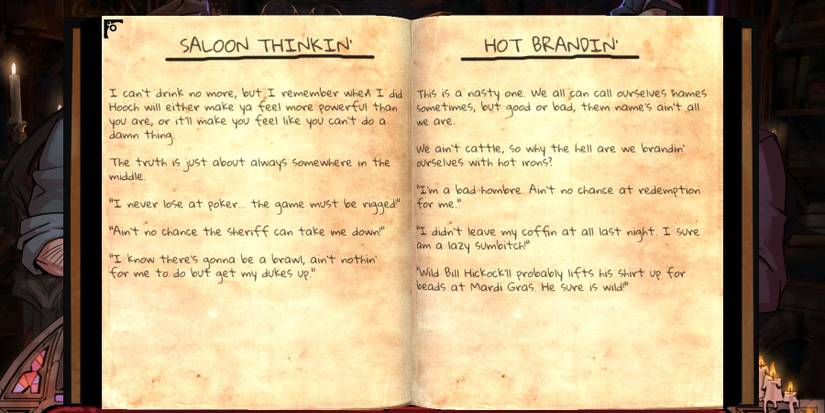 SALOON THINKIN'
I can't drink no more, but I remember when I did
Hooch will either make ya feel more powerful than
you are, or it'll make you feel like you can't do a
damn thing.
The truth is just about always somewhere in the
middle.
"I never lose at poker... the game must be rigged"
"Ain't no chance the sheriff can take me down!"
"I know there's gonna be a brawl, ain't nothin'
for me to do but get my dukes up."
HOT BRANDIN'
This is a nasty one. We all can call ourselves names
sometimes, but good or bad, them name's ain't all
we are.
We ain't cattle, so why the hell are we brandin'
ourselves with hot irons?
"I'm a bad hombre. Ain't no chance at redemption
for me."
"I didn't leave my coffin at all last night. I sure
am a lazy sumbitch!"
"Wild Bill Hickock'll probably lifts his shirt up for
beads at Mardi Gras. He sure is wild!"